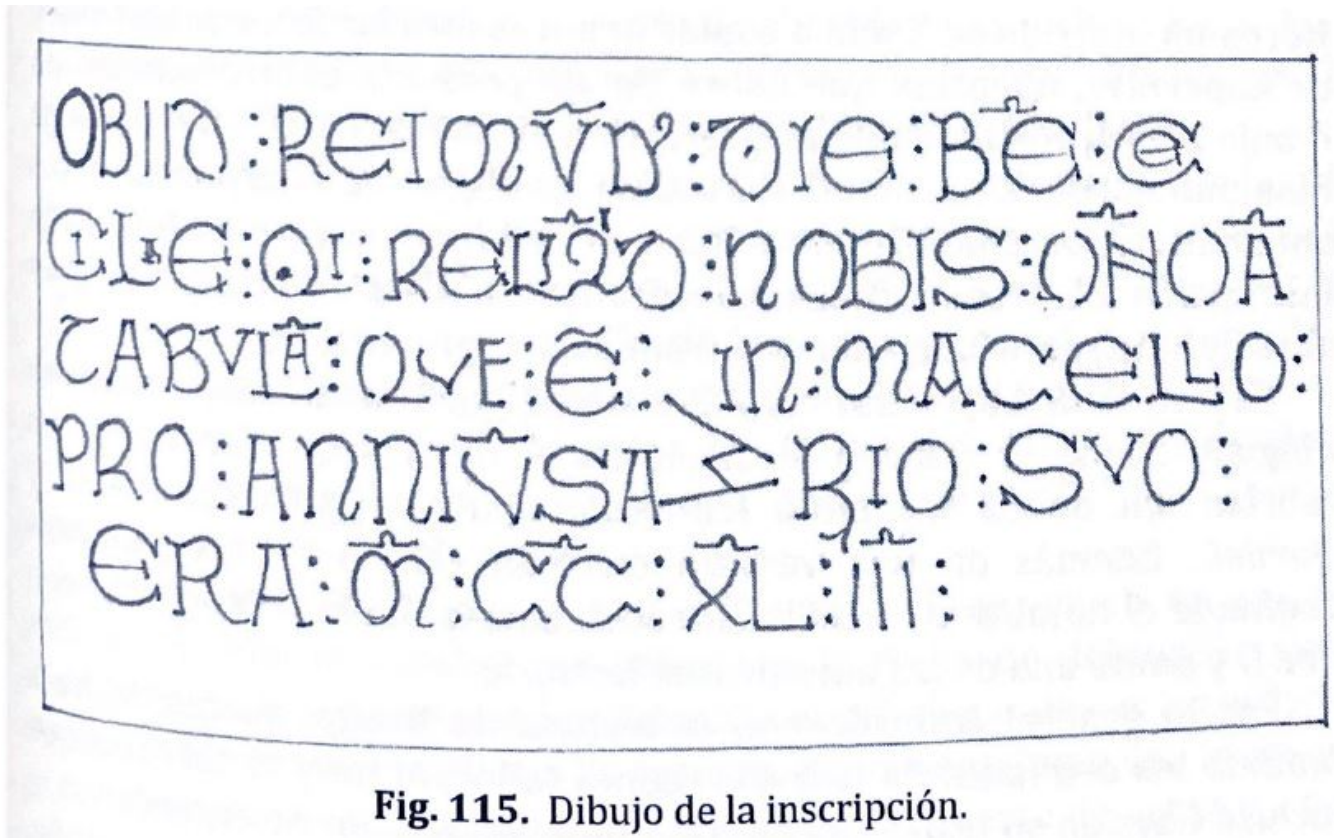 OBIIT : REIMV̄Dꝰ : DIE : BĒ : CE
CILIE : QI : RELIQ̄T : NOBIS : OÑOĀ
TABVLĀ : QVE : Ē : IN : MACELLO :
PRO : ANNIV̄SARIO : SVO :
ERA : M̄ : CC̄ : X̄L : IĪ :
Fig. 115. Dibujo de la inscripción.